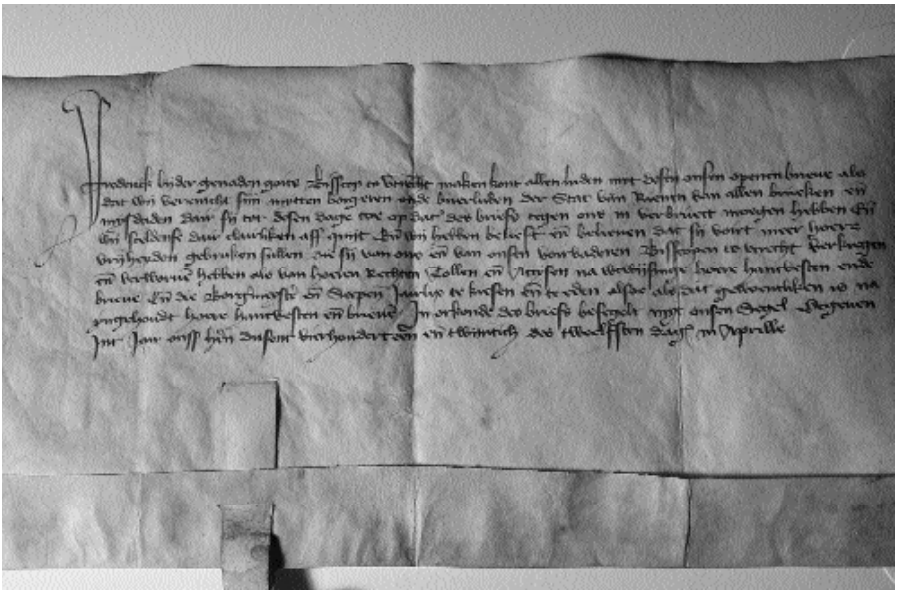 Frederick bijder genaden goits Bisscop to Utrecht maken kont allen luden mit desen onsen openen brieue also
dat wij vereenicht sijn mitten borgeren ende buerluden der Stat van Renen van allen brueken en̄
misdaden dair sij tot desen dage toe op dat̄ des briefs tegen ons in verbuert moegen hebben En̄
wij scelden se dair clairliken aff quijt En̄ wij hebben belieft en̄ belieuen dat sij voirt meer hoere
vrijheyden gebruken sullen die sij van ons en̄ van onsen voirvaderen Bisscopen to Utrecht verkregen
en̄ verworuē hebben als van hoeren Rechten Tollen en̄ Accijsen na wtwijsinge hoere hantvesten ende
brieue En̄ die Borgermeist̄e en̄ Scepen Jairlix te kiesen en̄ te eden alsoe als dat gewoentliken is na
ynhoudt hoere hantvesten en̄ brieue In orkonde des briefs besegelt mit onsen Segel Gegeuen
Int Jair onss hērn dusent vierhondert een en̄ twintich des tweelfsten dages in Aprille